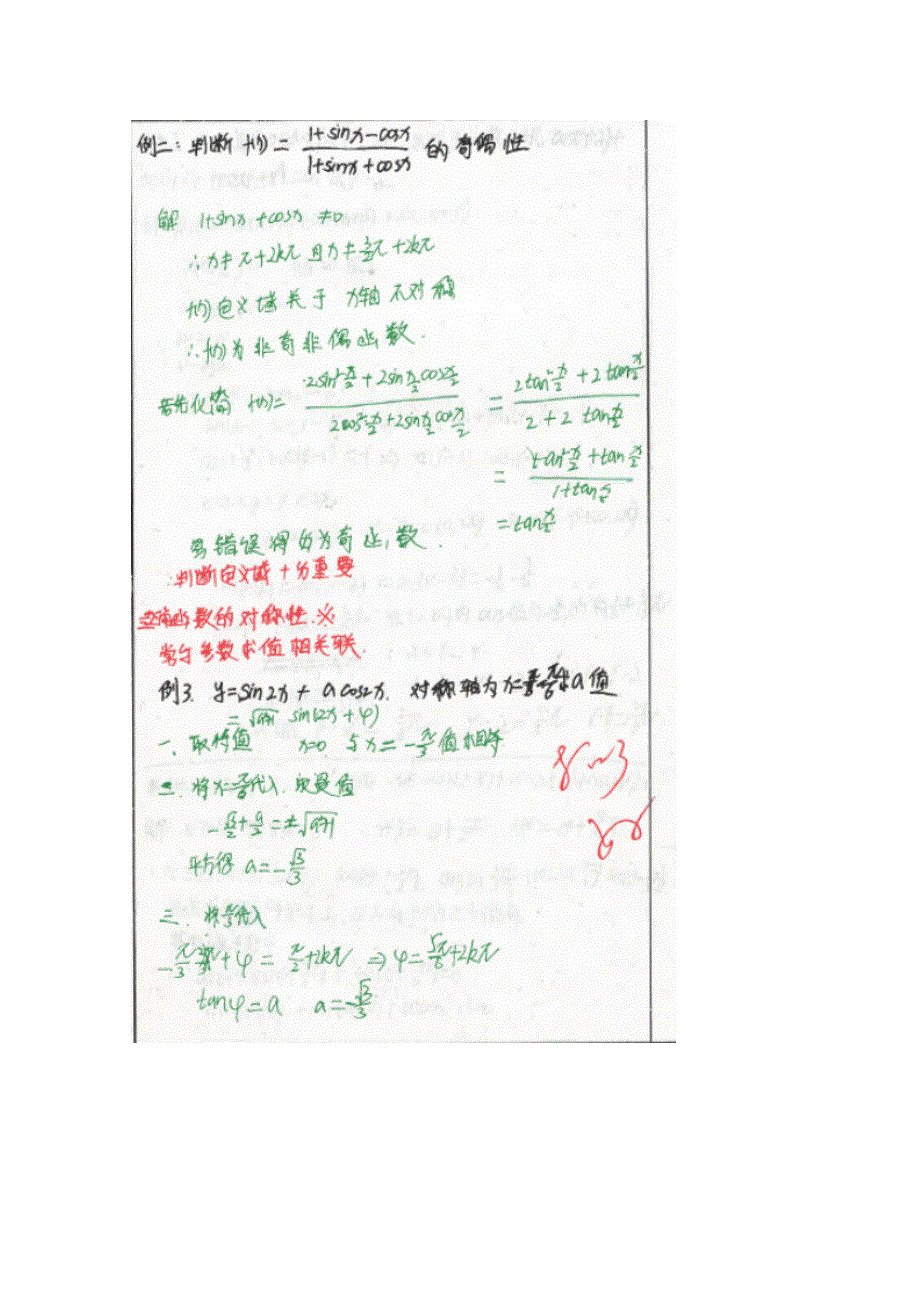 例二:判断 f(x) = (1+sinx-cosx)/(1+sinx+cosx) 的奇偶性
解 1+sinx+cosx ≠0
∴x≠π+2kπ 且x≠3/2π+2kπ
f(x)定义域关于 y轴不对称
∴f(x)为非奇非偶函数.
若先化简 f(x)= (2sin²x/2+2sinx/2cosx/2)/(2cos²x/2+2sinx/2cosx/2) = (2tan²x/2+2tanx/2)/(2+2tanx/2)
= (tan²x/2+tanx/2)/(1+tanx/2)
=tanx/2
易错误得出为奇函数.
∴判断定义域十分重要
函数的对称性.※
常与参数求值相关联.
例3. y=sin2x+acos2x. 对称轴为x= a值
=√a²+1 sin(2x+φ)
一、取特值 x=0 与x=-π/3值相等
二.将x=-π/6代入.取最值
-√3/2+a/2=±√a²+1
平方得 a=-√3/3
三. 代入
-π/3+φ=π/2+2kπ ⇒φ=5π/6+2kπ
tanφ=a a=-√3/3